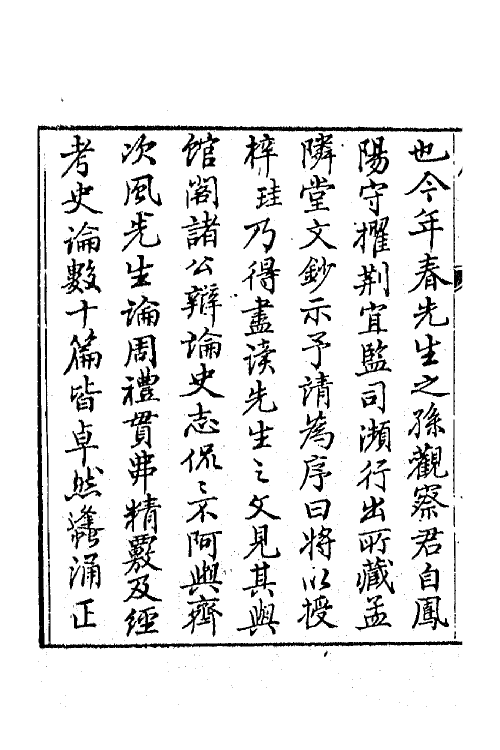 也今年春先生之孫觀察君自鳳
陽守擢荆宜監司瀕行出所藏孟
隣堂文鈔示予請為序曰將以授
梓珪乃得盡读先生之文見其與
馆閣諸公辯論史志侃〻不阿與齊
次風先生論周禮貫弗精覈及經
考史論數十篇皆卓然淵涌正